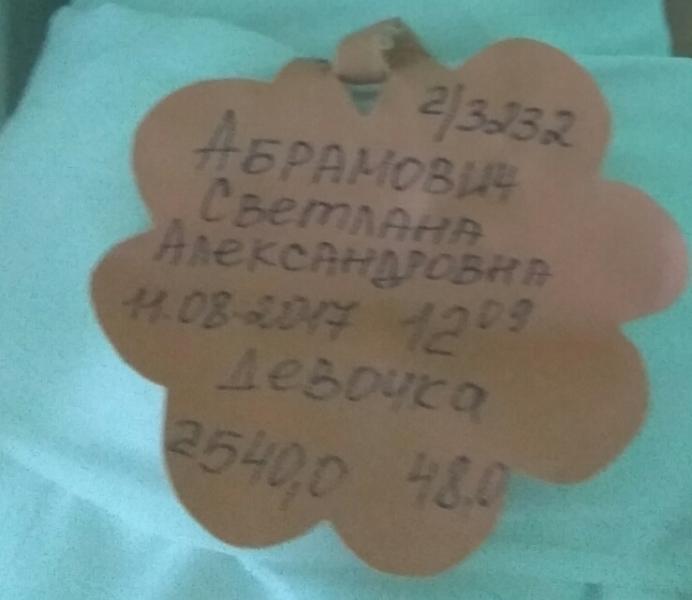 2/3232
АБРАМОВИЧ
Светлана
Александровна
11.08.2017 12 09
Девочка
2540,0 48,0